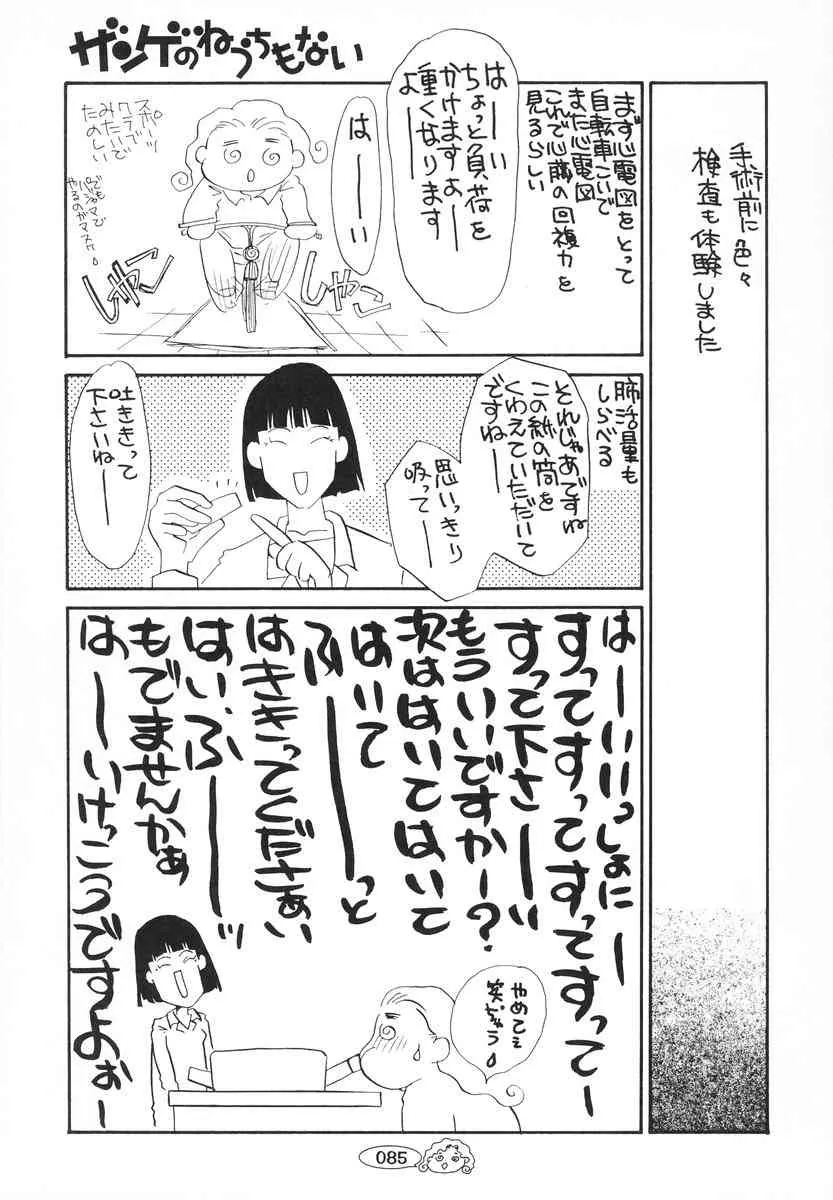 ザンゲのねうちもない
手術前に色々
検査も体験しました
まず心電図をとって
自転車こいで
また心電図
これで心臓の回複力を
見るらしい
はーい
ちょっと負荷を
かけますよー
重くなります
よー
はーい
スポーツ
クラブ
みたいで
たのしい
でも
パジャマで
やるのがマヌケ
しゃこ
しゃこ
肺活量も
しらべる
それじゃあですね
この紙の筒を
くわえていただいて
ですねー
思いっきり
吸ってー
吐ききって
下さいねー
はーいいっしょにー
すってすってすってすってー
すって下さーい
もういいですかー?
次ははいてはいて
はいて
ふーーっと
はききってくださぁい
はい、ふーーッ
もでませんかぁ
はーいけっこうですよぉー
やめてぇ
笑っちゃう
085